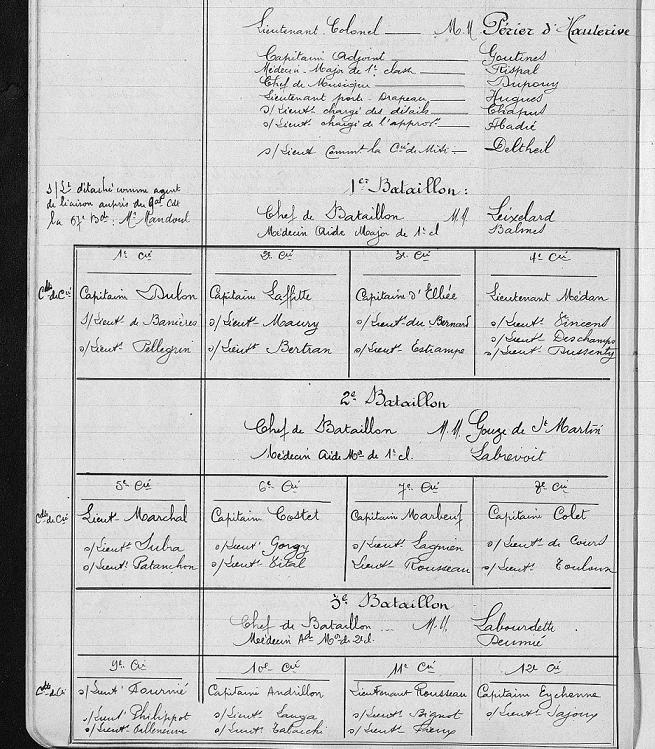 Lieutenant Colonel — M.M. Périer d'Hauterive
Capitaine Adjoint — Goutines
Médecin-Major de 1e classe — Rispal
Chef de Musique — Dupouy
Lieutenant porte-Drapeau — Hugues
s/Lieutt chargé des détails — Chapus
s/Lieutt chargé de l'approt — Hadié
s/Lieut Commt la Cie de Mitr — Deltheil
s/Lt détaché comme agent
de liaison auprès du Gal Cdt
la 67e Bde : Mr Mandoul
1er Bataillon :
Chef de Bataillon M.M. Leixelard
Médecin Aide Major de 1e cl Balmes
1e Cie 2e Cie 3e Cie 4e Cie
Cdts de Cie Capitaine Dubon Capitaine Laffitte Capitaine d'Elbée Lieutenant Médan
s/Lieutt de Banières s/Lieutt Maury s/Lieutt du Bernard s/Lieutt Vincens
s/Lieutt Deschamps
s/Lieutt Pellegrin s/Lieutt Bertran s/Lieutt Estrampe s/Lieutt Dussenty
2e Bataillon
Chef de Bataillon M.M. Gouze de St Martin
Médecin Aide Mor de 1e cl. Labrevoit
5e Cie 6e Cie 7e Cie 8e Cie
Cdts de Cie Lieutt Marchal Capitaine Costet Capitaine Marbeuf Capitaine Colet
s/Lieutt Subra s/Lieutt Gorgy s/Lieutt Lagnien s/Lieutt de Cours
s/Lieutt Patanchon s/Lieutt Vital Lieutt Rousseau s/Lieutt Touloun
3e Bataillon
Chef de Bataillon ... M.M. Labourdette
Médecin Ade Mor de 2e cl. Deumié
9e Cie 10e Cie 11e Cie 12e Cie
Cdts de Cie s/Lieutt Fournié Capitaine Andrillon Lieutenant Rousseau Capitaine Eychenne
s/Lieutt Philippot s/Lieutt Lauga s/Lieutt Bignot s/Lieutt Lajous
s/Lieutt Villeneuve s/Lieutt